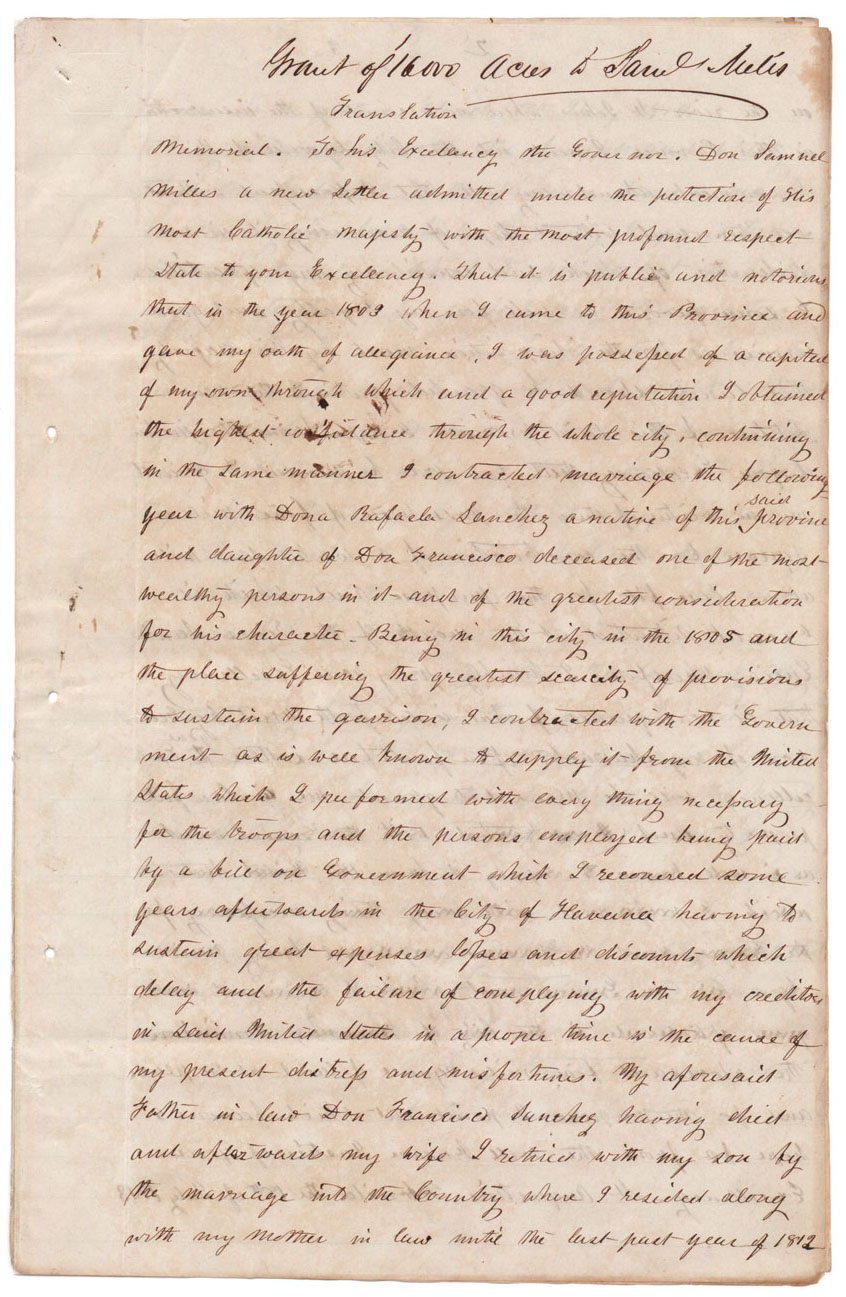 Grant of 16000 Acres to Saml Miles
Translation
Memorial. To his Excellency the Governor. Don Samuel
Milles a new Settler admitted under the protection of His
most Catholic majesty with the most profound respect
State to your Excellency. That it is public and notorious
that in the year 1803 when I came to this Province and
gave my oath of allegiance, I was possessed of a capital
of my own through which and a good reputation I obtained
the highest confidance through the whole city, continuing
in the same manner I contracted marriage the following
year with Dona Rafaela Sanchez a native of this said province
and daughter of Don Francisco deceased one of the most
wealthy persons in it and of the greatest consideration
for his character. Being in this city in the 1805 and
the place suffering the greatest scarcity of provisions
to sustain the garrison, I contracted with the Govern
ment as is well known to supply it from the United
States which I performed with every thing necessary
for the troops and the persons employed being paid
by a bill on Government which I recovered some
years afterwards in the City of Havana having to
sustain great expenses losses and discounts which
delay and the failure of complying with my creditors
in said United States in a proper time is the cause of
my present distress and misfortunes. My aforesaid
Father in law Don Francisco Sanchez having died
and afterwards my wife I retired with my son by
the marriage into the Country where I resided along
with my mother in law until the last past year of 1812